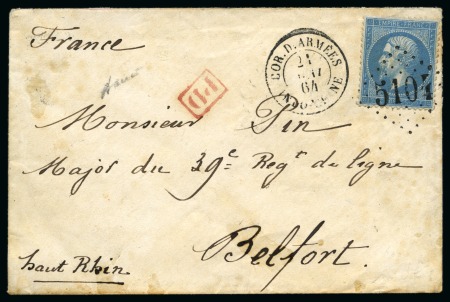 France
COR. D. ARMÉES
21
64
5104
EMPIRE FRANC
PD
Monsieur Pin
Major du 39e Regt de ligne
Belfort.
haut Rhin